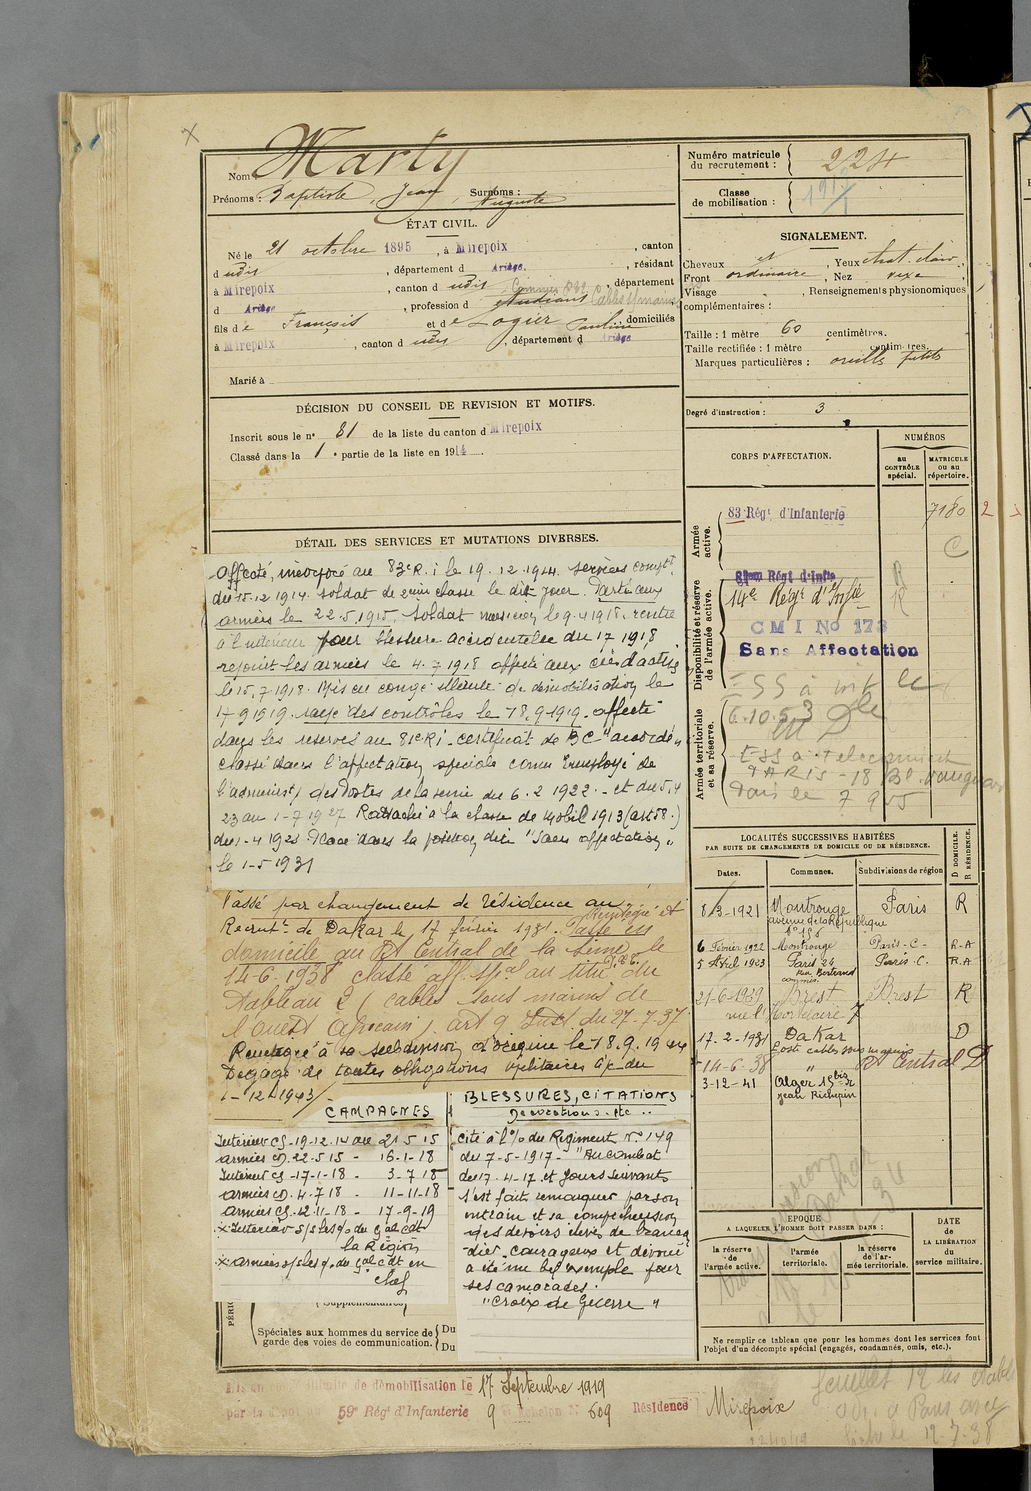 Nom Marty
Prénoms : Baptiste, Jean, Surnoms : Auguste
ÉTAT CIVIL.
Né le 21 octobre 1895, à Mirepoix, canton
d udit, département d Ariège, résidant
à Mirepoix, canton d udit, département
d Ariège, profession d étudiant
fils de François et de Logier Pauline domiciliés
à Mirepoix, canton d udit, département d Ariège
Marié à
DÉCISION DU CONSEIL DE REVISION ET MOTIFS.
Inscrit sous le n° 81 de la liste du canton d Mirepoix
Classé dans la 1e partie de la liste en 1914.
DÉTAIL DES SERVICES ET MUTATIONS DIVERSES.
Affecté, incorporé au 83e R.i le 19.12.1914. services compt
du 15.12.1914. soldat de 2eme classe le dit jour. Parti aux
armées le 22.5.1915. Soldat musicien le 9.4.1918. rentré
à l'intérieur pour blessure accidentelle du 17 1 918
rejoint les armées le 4.7.1918 affecté aux
le 15.7.1918. Mis en congé illimité de démobilisation le
17 9 1919. rayé des contrôles le 18.9.1919. affecté
dans les réserves au 81e Ri. certificat de BC "accordé"
classé dans l'affectation spéciale comme Employé de
l'administ) des Postes de la Seine du 6.2 1922 - et du 5.4
23 au 1-7 1927 Rattaché à la classe de Mobil 1913 (art 58.)
du 1-4 1928 Placé dans la position dite "Sans affectation"
le 1-5 1931
Passé par changement de résidence au
Recrut. de Dakar le 17 février 1931. Réintégré et Passé en
domicile au Rt Central de la Seine le
14-6.1938 classé aff. spal au titre du
tableau 2 (cables sous marins de
l'Ouest Africain). art 9 Inst. du 27-7-37
Réintégré à sa subdivision d'origine le 18.9.1944
Dégagé de toutes obligations militaires à/c du
1-12-1943
CAMPAGNES
Intérieur CS-19-12.14 au 21.5 15
armées CD. 22-5 15 - 16-1-18
Intérieur CS -17-1-18 - 3-7 18
armées CD. 4.7 18 - 11-11-18
armées CS. 12.11-18 - 17-9-19
× Intérieur s/s les o/. du gal cdt
la Région
× armées s/s les o/. du gal cdt en
chef
BLESSURES, CITATIONS
Décorations. etc..
Cité à l'o/o du Régiment N° 149
du 7-5-1917- "Au combat
du 17.4-17 et jours suivants
s'est fait remarquer par son
entrain et sa compréhension
des devoirs élevés de brancar
dier. courageux et dévoué
a été un bel exemple pour
ses camarades.
"Croix de Guerre"
Supplémentaires
Spéciales aux hommes du service de garde des voies de communication. { Du
Du
Numéro matricule du recrutement : 224
Classe de mobilisation :
SIGNALEMENT.
Cheveux, Yeux chat. clair,
Front ordinaire, Nez vexe
Visage, Renseignements physionomiques
complémentaires :
Taille : 1 mètre 60 centimètres.
Taille rectifiée : 1 mètre centimètres.
Marques particulières : oreilles petites
Degré d'instruction : 3
CORPS D'AFFECTATION.
NUMÉROS
au CONTRÔLE spécial.
MATRICULE ou au répertoire.
Armée active.
83 Régt d'Infanterie 7180
C
Disponibilité et réserve de l'armée active.
81eme Régt d'Infie R
14e Régt d'Infie R
CMI No 173
Sans Affectation
Armée territoriale et sa réserve.
6.10.53
PARIS - 18 Bd
Paris le 7 9 55
LOCALITÉS SUCCESSIVES HABITÉES
PAR SUITE DE CHANGEMENTS DE DOMICILE OU DE RÉSIDENCE.
Dates. Communes. Subdivisions de région D DOMICILE. R RÉSIDENCE.
8/3-1921 Montrouge Paris R
avenue de la République
N° 156
6 Février 1922 Montrouge Paris-C- R-A
5 Avril 1923 Paris 24 Paris-C. R.A
21-6-1929 Brest Brest R
17-2-1931 Dakar D
Poste cables sous marins
14-6-38 " Rt Central D
3-12-41 Alger 15bis r
Jean Richepin
EPOQUE
A LAQUELLE L'HOMME DOIT PASSER DANS :
la réserve de l'armée active.
l'armée territoriale.
la réserve de l'armée territoriale.
DATE de LA LIBÉRATION du service militaire.
Ne remplir ce tableau que pour les hommes dont les services font
l'objet d'un décompte spécial (engagés, condamnés, omis, etc.).
Mis en congé illimité de démobilisation le 17 Septembre 1919
par le dépôt du 59e Régt d'Infanterie 9e échelon N° 609 Résidence Mirepoix